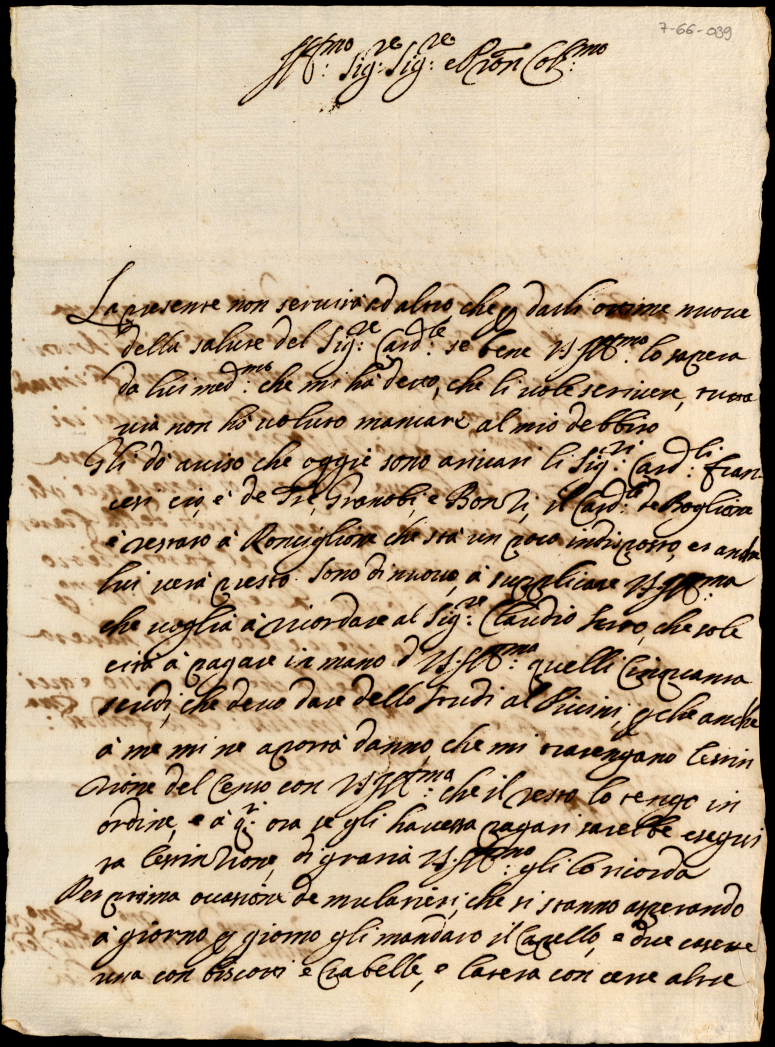 7-66-039
Ill:mo Sig:re Sig:re e Pron Col:mo
La presente non seruirà ad altro che p darli ottime nuoue
della salute del Sig:re Card:le se bene VS Ill:mo lo saperà
da lui med:mo che mi hà detto, che li uole scriuere, tutta
uia non hò uoluto mancare al mio debbito
Gli dò auiso che oggie sono ariuati li Sig:ri Card:li fran-
cesi ciò, è de Tré, Granobi, e Bonzi, il Card:le de Boglione
è restato à Ronciglione che stà un poco indisposto, et anche
lui verà presto. Sono di nuouo, à supplicare VS Ill:ma
che uoglia à ricordare al Sig:re Claudio che sole
citi à pagare in mano d VS. Ill:ma quelli Cinquanta
scudi, che deuo dare dello al p che anche
à me mi ne aporta danno che mi Lestin
zione del Censo con VS Ill:ma che il resto lo tengo in
ordine, e à q:r ora se gli hauessa pagati sarebbe esegui
ta Lestinzione, di grazia VS. Ill:mo gli lo ricorda
Per prima occasione de mulattieri, che si stanno aspetando
à giorno p giorno gli mandarò il Capello, e due casette
una con biscoti e Ciabelle, e laltra con cere altre